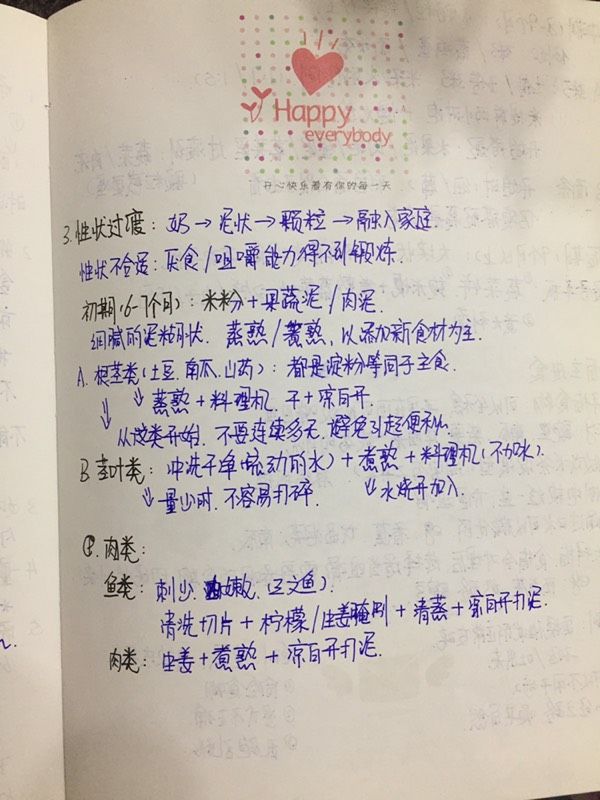 Happy
everybody
开心快乐着有你的每一天
3. 性状过度：奶→泥状→颗粒→融入家庭.
性状不合适：厌食/咀嚼能力得不到锻炼.
初期(6-7个月)：米粉+果蔬泥/肉泥.
细腻的泥糊状. 蒸熟/煮熟, 以添加新食材为主.
A. 根茎类(土豆.南瓜.山药)：都是淀粉等同于主食.
↓ ↓蒸熟+料理机. 干+凉白开.
从这类开始. 不要连续多天. 避免引起便秘.
B 茎叶类：冲洗干净(流动的水)+煮熟+料理机(不加水).
↓量少时. 不容易打碎. ↓水烧开加入.
肉类：
鱼类：刺少. 嫩. (三文鱼).
清洗切片+柠檬/生姜腌制+清蒸+凉白开打泥.
肉类：生姜+煮熟+凉白开打泥.